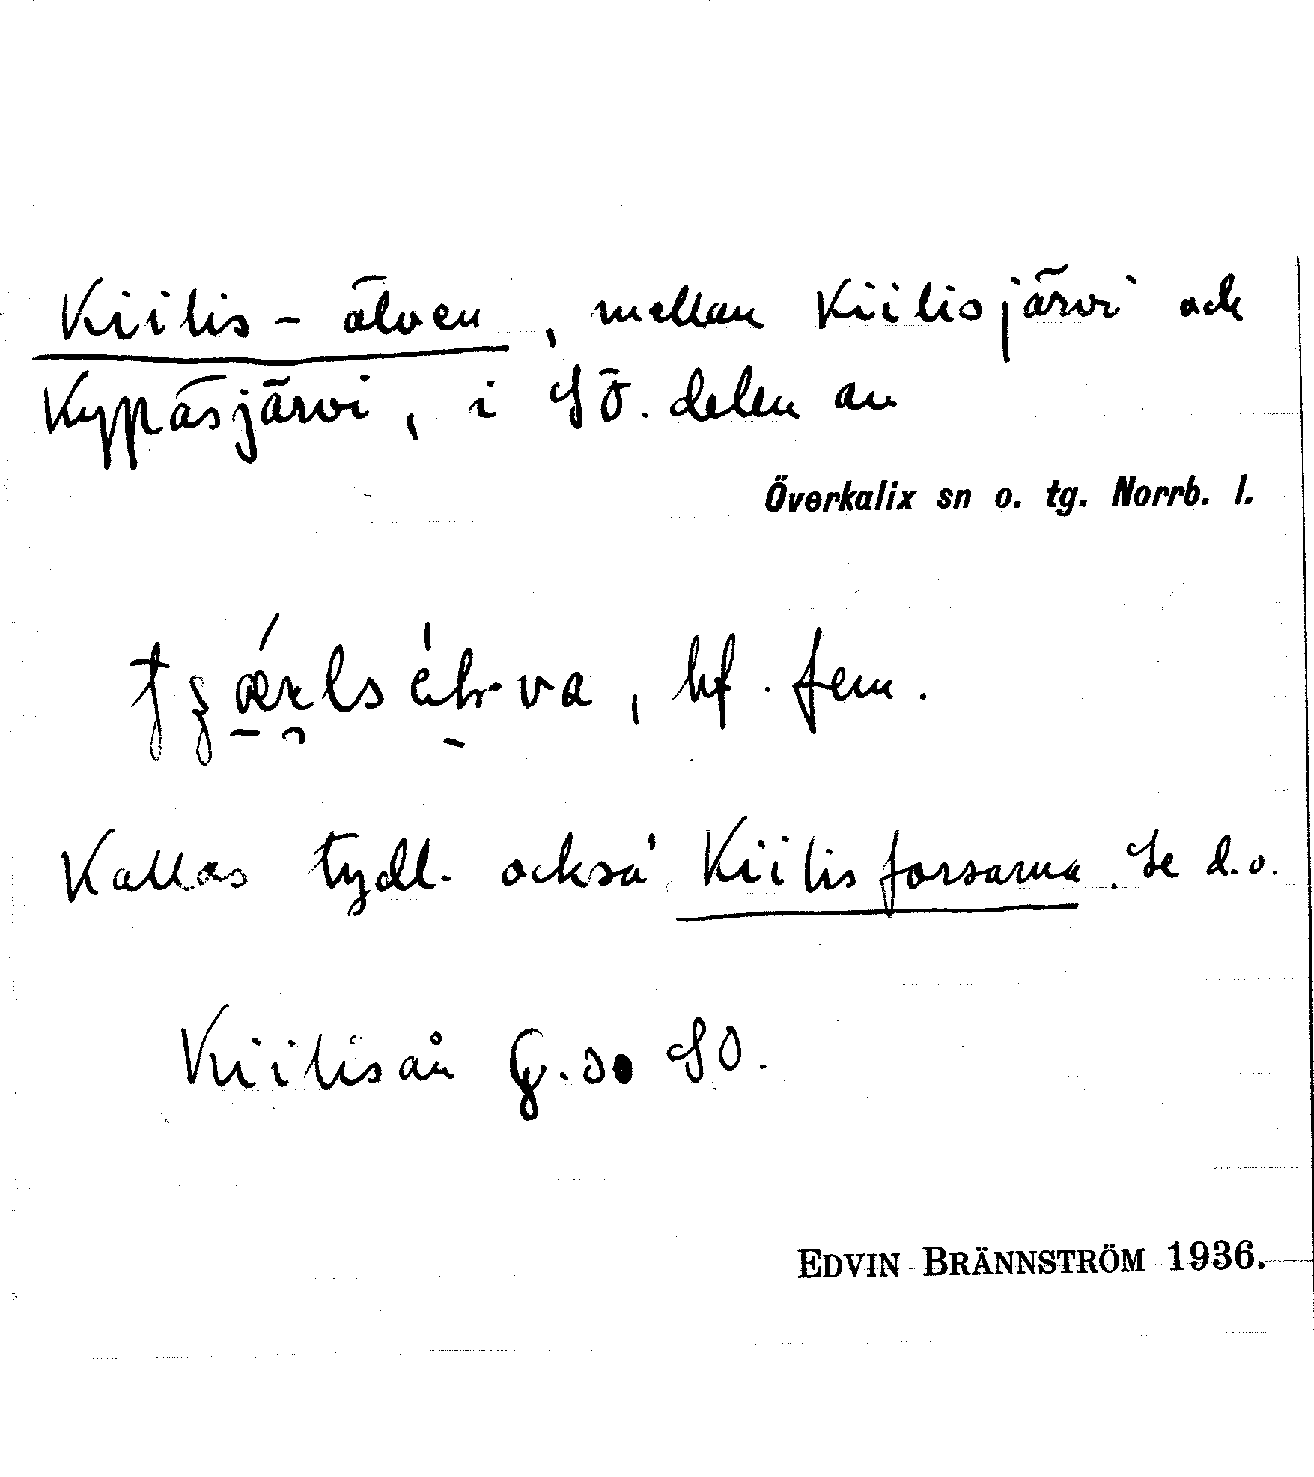 Kiilis-älven, mellan Kiilisjärvi och
Kypasjärvi, i SÖ. delen av
Överkalix sn o. tg. Norrb. l.
bf. fem.
Kallas tydl. också Kiilisforsarna. Se d.o.
Kiilisån G.s. SO.
EDVIN BRÄNNSTRÖM 1936.